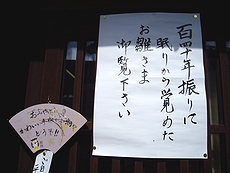 百四十年振りに
眠りから覚めた
お雛さま
御覧下さい
どうぞ!!